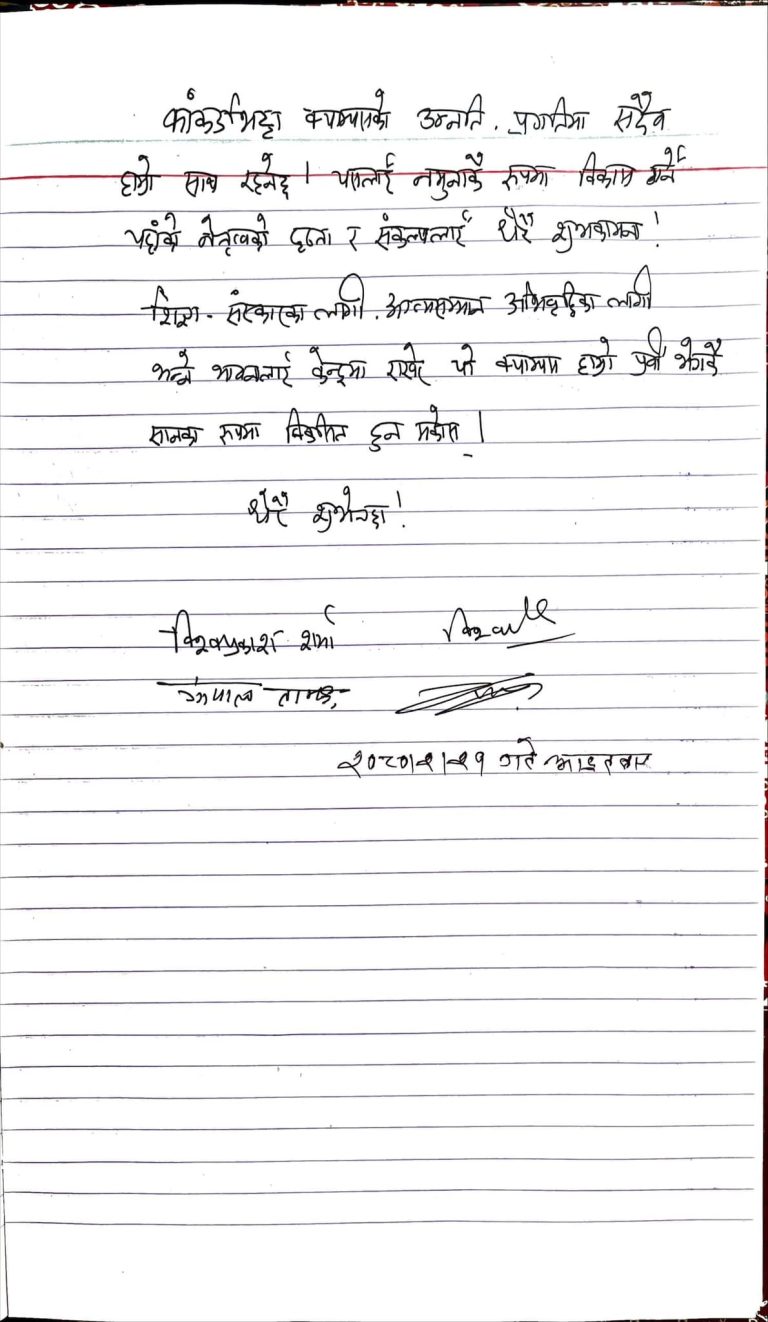 काँकडभिट्टा क्याम्पसको उन्नति, प्रगतिमा सदैव
हाम्रो साथ रहनेछ । यसलाई नमुनाकै रुपमा विकास गर्ने
यहाँको नेतृत्वको दृढता र संकल्पलाई धेरै शुभकामना !
शिक्षा - संस्कारका लागी, आत्मसम्मान अभिवृद्धिका लागी
भन्ने भावनालाई केन्द्रमा राखेर यो क्याम्पस हाम्रो पूर्वी भेगकै
सानका रुपमा विकसित हुन सकोस् ।
धेरै शुभेच्छा !
विश्वप्रकाश शर्मा
२०८०।२।२१ गते आइतबार